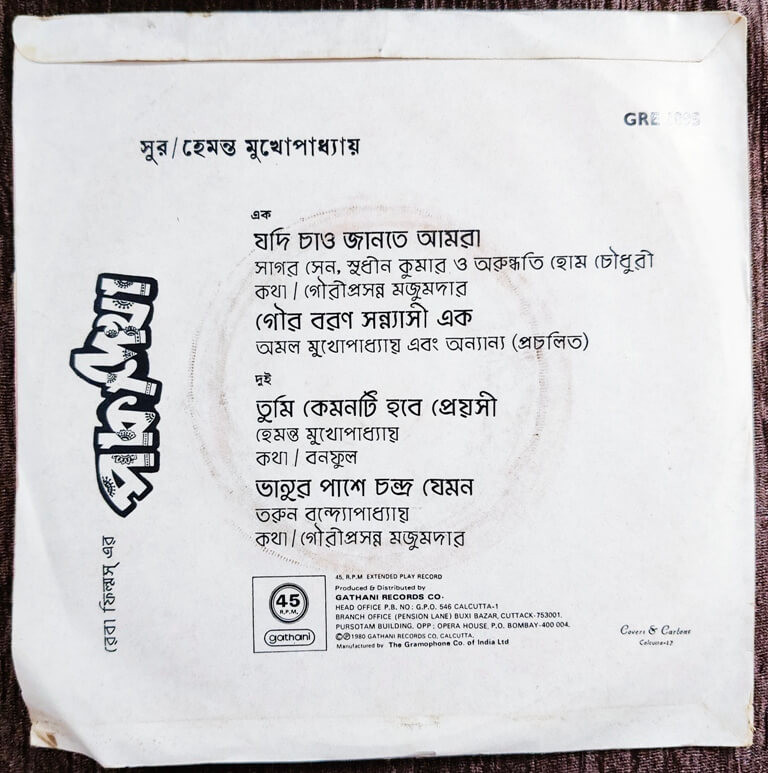 GRE
সুর / হেমন্ত মুখোপাধ্যায়
এক
যদি চাও জানতে আমরা
সাগর সেন, সুধীন কুমার ও অরুন্ধতি হোম চৌধুরী
কথা / গৌরীপ্রসন্ন মজুমদার
গৌর বরণ সন্ন্যাসী এক
অমল মুখোপাধ্যায় এবং অন্যান্য (প্রচলিত)
দুই
তুমি কেমনটি হবে প্রেয়সী
হেমন্ত মুখোপাধ্যায়
কথা / বনফুল
ভানুর পাশে চন্দ্র যেমন
তরুন বন্দ্যোপাধ্যায়
কথা / গৌরীপ্রসন্ন মজুমদার
রেবা ফিল্মস্ এর
পাকা দেখা
45
R.P.M.
gathani
45, R.P.M. EXTENDED PLAY RECORD
Produced & Distributed by
GATHANI RECORDS CO.
HEAD OFFICE P.B. NO: G.P.O. 546 CALCUTTA-1
BRANCH OFFICE (PENSION LANE) BUXI BAZAR, CUTTACK-753001.
PURSOTAM BUILDING, OPP: OPERA HOUSE, P.O. BOMBAY-400 004.
©℗1980 GATHANI RECORDS CO, CALCUTTA.
Manufactured by The Gramophone Co. of India Ltd
Covers & Cartons
Calcutta-17